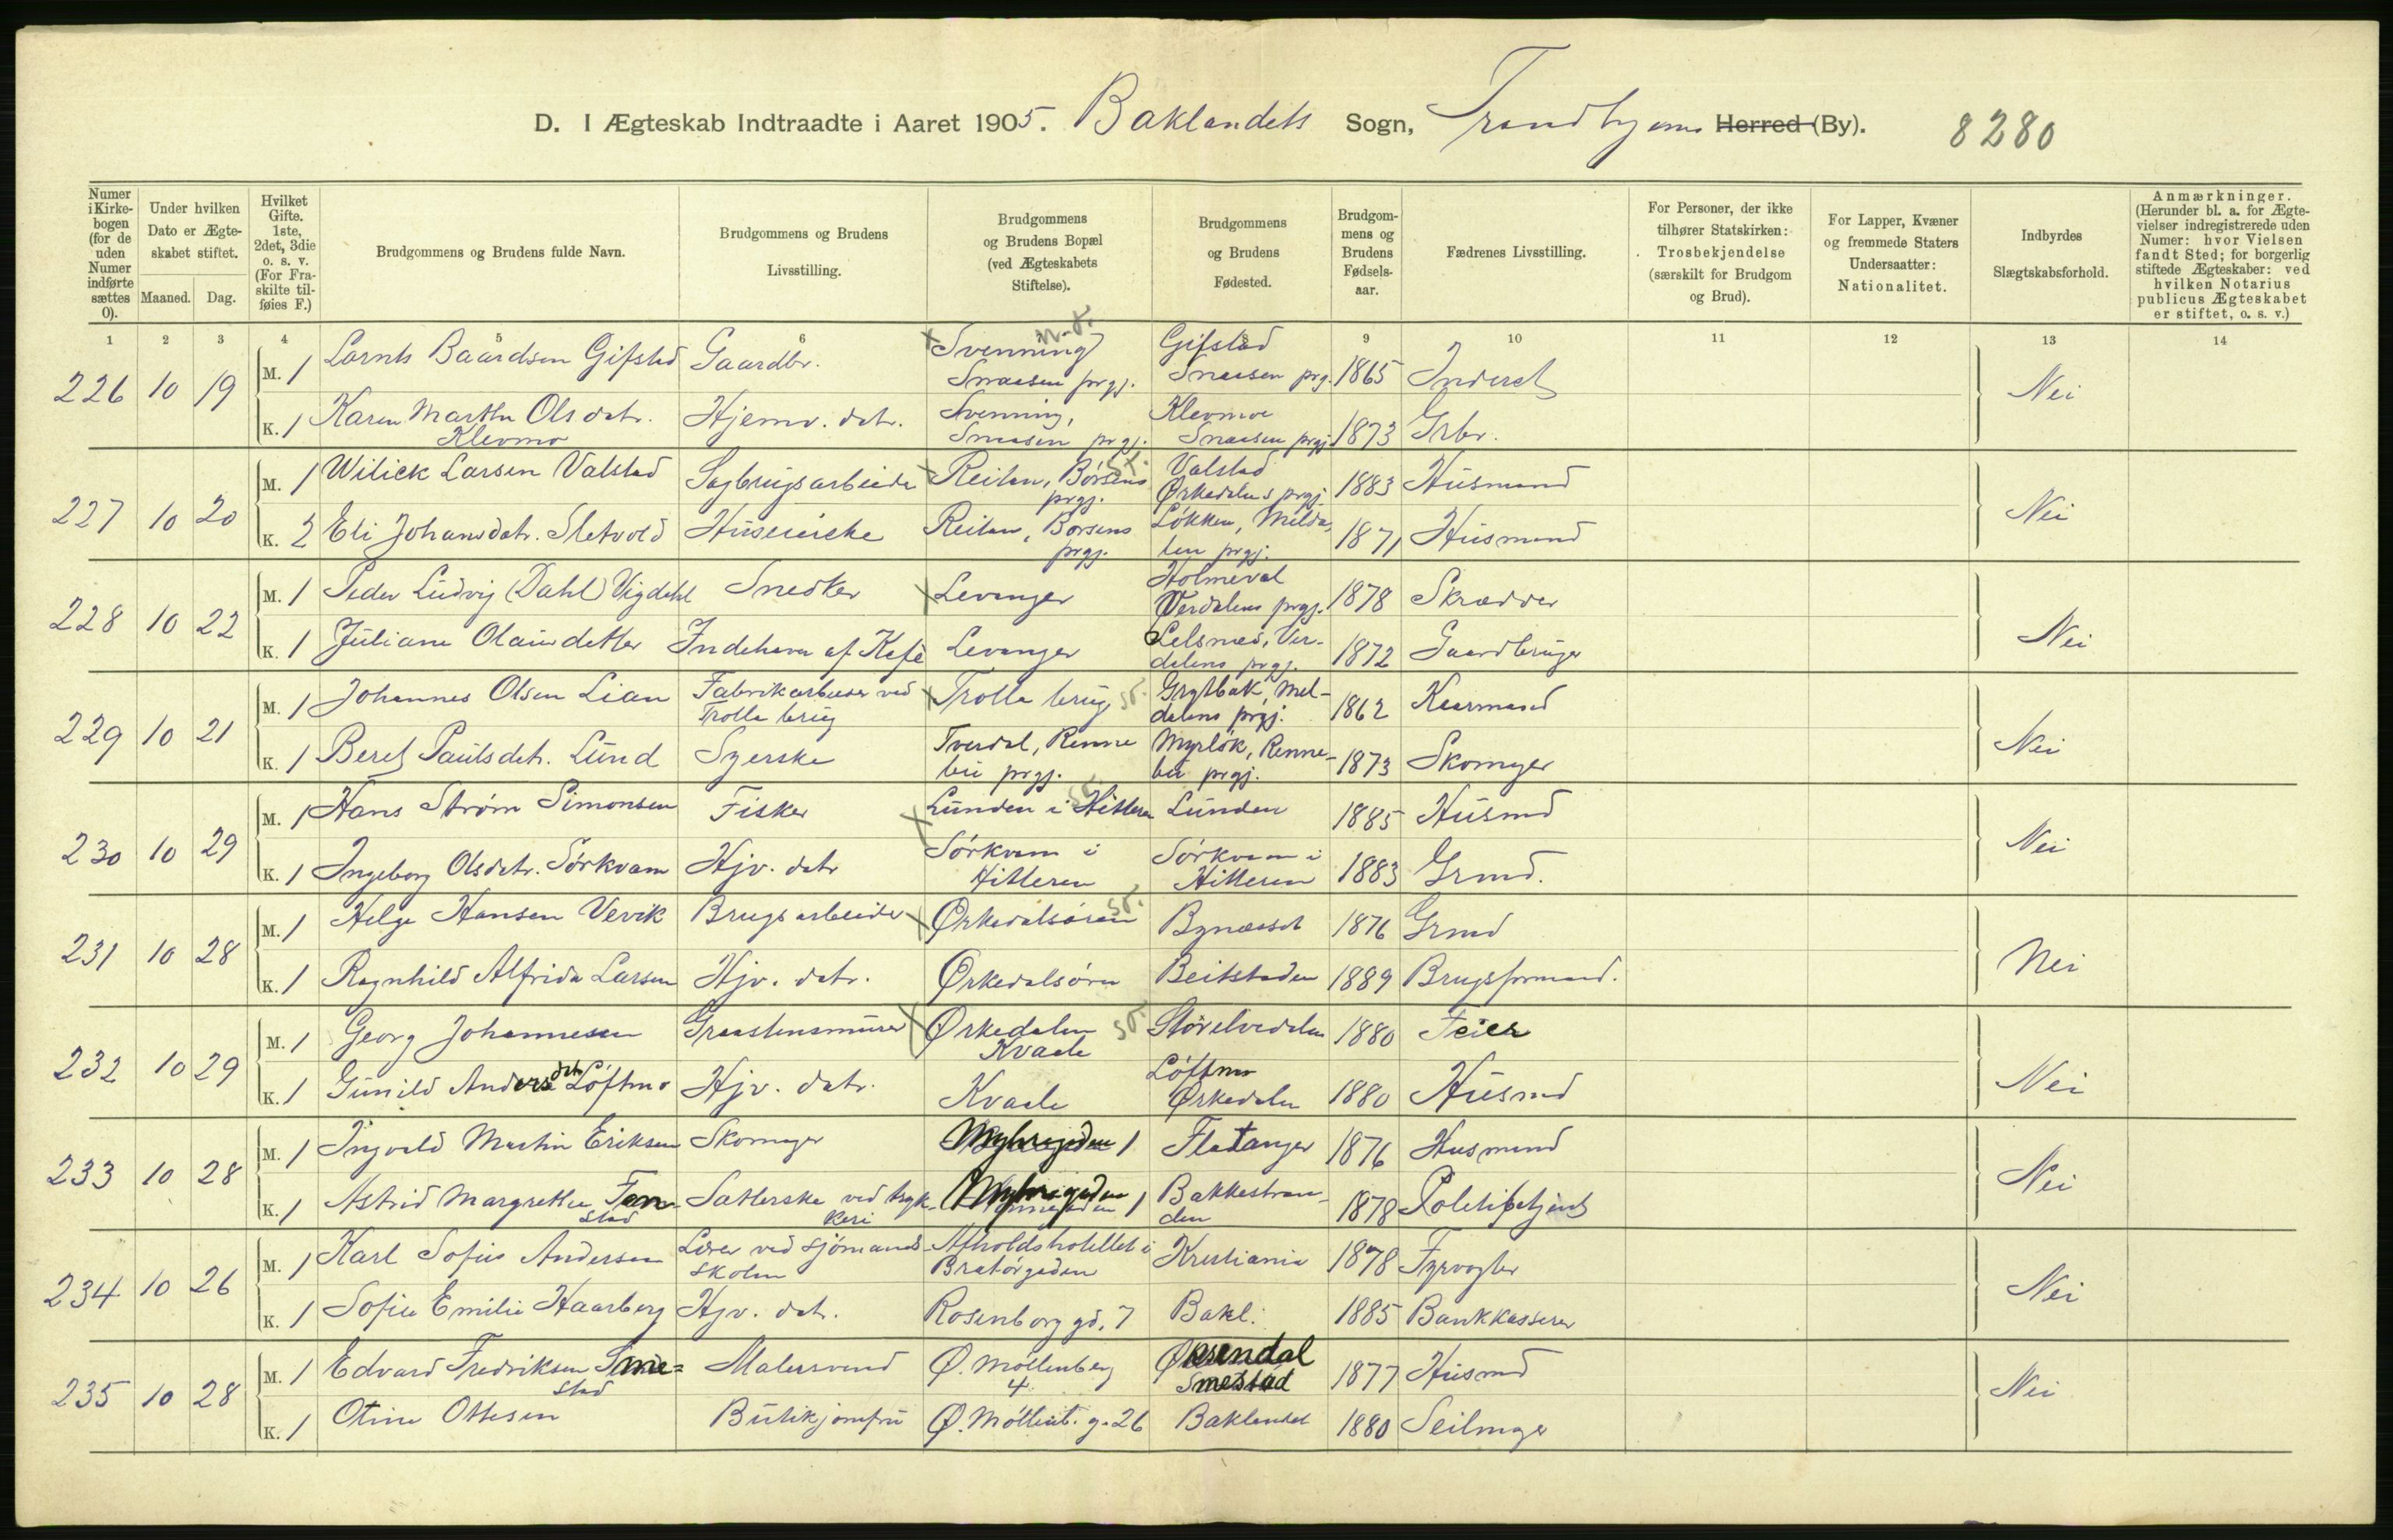 D. I Ægteskab Indtraadte i Aaret 1905. Baklandets Sogn, Trondhjems Herred (By). 8280
Numer i Kirkebogen (for de uden Numer indførte sættes 0).
Under hvilken Dato er Ægteskabet stiftet.
Maaned. Dag.
Hvilket Gifte. 1ste, 2det, 3die o. s. v. (For Fraskilte tilføies F.)
Brudgommens og Brudens fulde Navn.
Brudgommens og Brudens Livsstilling.
Brudgommens og Brudens Bopæl (ved Ægteskabets Stiftelse).
Brudgommens og Brudens Fødested.
Brudgommens og Brudens Fødselsaar.
Fædrenes Livsstilling.
For Personer, der ikke tilhører Statskirken: Trosbekjendelse (særskilt for Brudgom og Brud).
For Lapper, Kvæner og fremmede Staters Undersaatter: Nationalitet.
Indbyrdes Slægtskabsforhold.
Anmærkninger. (Herunder bl. a. for Ægtevielser indregistrerede uden Numer: hvor Vielsen fandt Sted; for borgerlig stiftede Ægteskaber: ved hvilken Notarius publicus Ægteskabet er stiftet, o. s. v.)
1 2 3 4 5 6 8 9 10 11 12 13 14
226 10 19 M. 1 Lornts Baardsen Gifstad Gaardbr. Svenning Snaasen prgj. n.t. Gifstad Snaasen prg. 1865 Inderst Nei
K. 1 Karen Marthe Olsdatr. Klevmo Hjemv. datr. Svenning, Snaasen prgj. Klevmoe Snaasen prgj. 1873 Grbr.
227 10 20 M. 1 Wilick Larsen Valstad Sagbrugsarbeider Reitan, Börsens prgj. st. Valstad Ørkedalens prgj. 1883 Husmand Nei
K. 2 Eli Johansdatr. Sletvold Huseierske Reitan, Börsens prgj. Lökken, Meldalen prgj. 1871 Husmand
228 10 22 M. 1 Peder Ludvig (Dahl) Vigdahl Snedker Levanger Holmeval Verdalens prgj. 1878 Skrædder Nei
K. 1 Juliane Olausdatter Indehaver af Kafé Levanger Lelsmed, Verdalens prgj. 1872 Gaardbruger
229 10 21 M. 1 Johannes Olsen Lian Fabrikarbeider ved Trolla brug Trolla brug st. Grytbak, Meldalens prgj. 1862 Kaarmand Nei
K. 1 Beret Paulsdatr. Lund Syerske Tverdal, Rennebu prgj. Myrlök, Rennebu prgj. 1873 Skomager
230 10 29 M. 1 Hans Ström Simonsen Fisker Lunden i Hitteren st. Lunden 1885 Husmd Nei
K. 1 Ingeborg Olsdatr. Sörkvam Hjv. datr Sörkvam i Hitteren Sörkvam i Hitteren 1883 Grmd.
231 10 28 M. 1 Helge Hansen Vevik Brugsarbeider Ørkedalsören st. Bynæsset 1876 Grmd Nei
K. 1 Ragnhild Alfrida Larsen Hjv. datr. Ørkedalsören Beitstaden 1889 Brugsformand.
232 10 29 M. 1 Georg Johannesen Graastensmurer Ørkedalen Kvaale st. Storelvedalen 1880 Feier Nei
K. 1 Gunild Andersdatr Löftmo Hjv. datr. Kvaale Löftmo Ørkedalen 1880 Husmd
233 10 28 M. 1 Ingvald Martin Eriksen Skomager 1 Flatanger 1876 Husmand Nei
K. 1 Astrid Margrethe Fanstad Sætterske ved trykkeri 1 Bakkestranden 1878 Politibetjent
234 10 26 M. 1 Karl Sofus Andersen Lærer ved sjömandsskolen Afholdshotellet i Bratörgaden Kristiania 1878 Fyrvogter Nei
K. 1 Sofie Emilie Haarberg Hjv. datr. Rosenborg gd. 7 Bakl. 1885 Bankkasserer
235 10 28 M. 1 Edvard Fredriksen Smestad Malersvend Ø. Möllenberg 4 Øksendal Smestad 1877 Husmd Nei
K. 1 Otine Ottesen Butikjomfru Ø. Möllenb. g. 26 Baklandet 1880 Seilmager